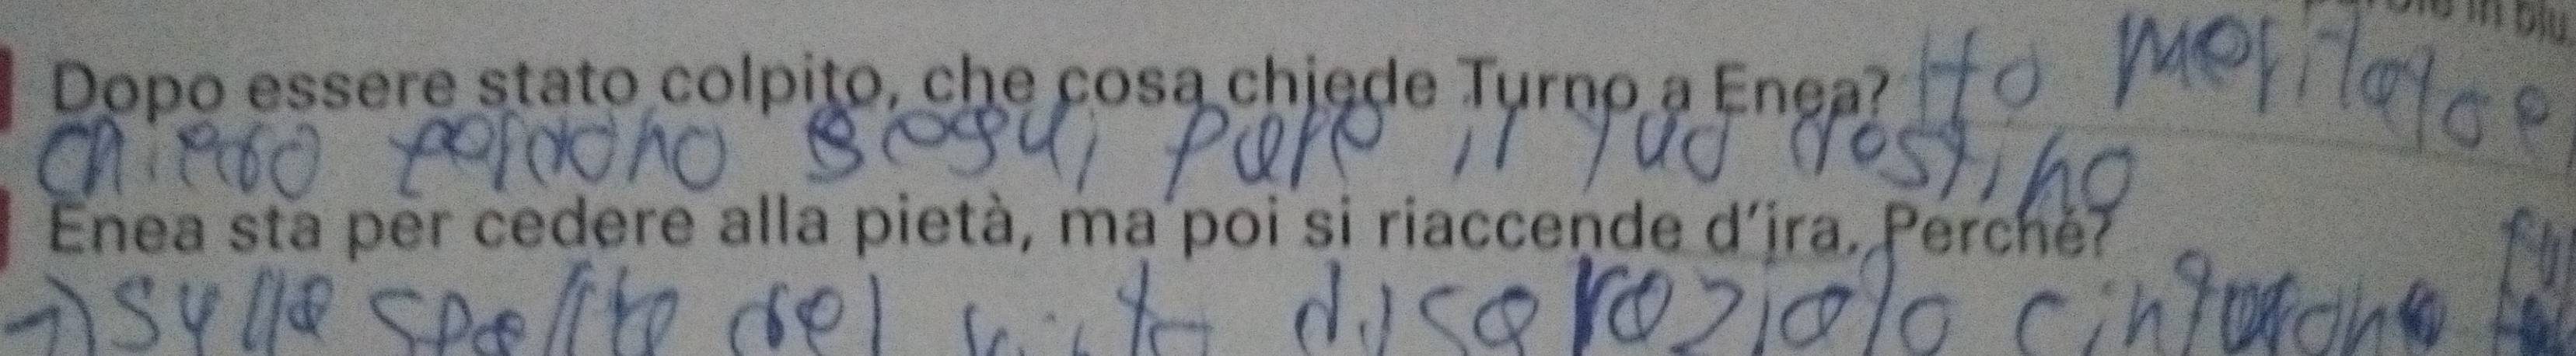 in blu
Dopo essere stato colpito, che cosa chiede Turno a Enea? Ho meritato e
chiedo perdono segui pure il tuo destino
Enea sta per cedere alla pietà, ma poi si riaccende d'ira. Perché?
sulle spalle del vinto disgraziato